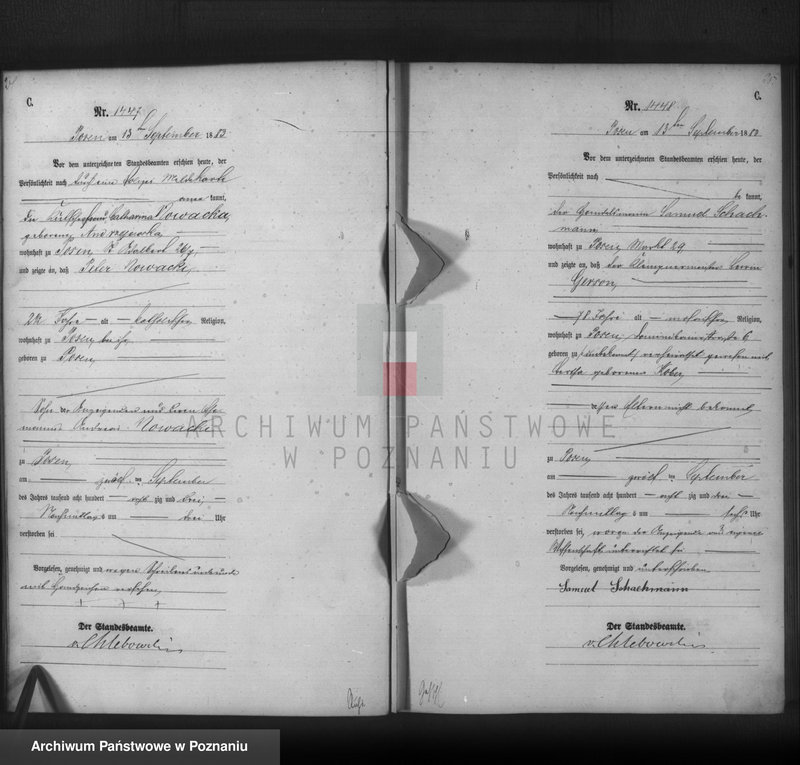 C.
Nr. 1447
Posen am 13ten September 1883
Vor dem unterzeichneten Standesbeamten erschien heute, der
Persönlichkeit nach durch
kannt,
die Catharina Nowacka,
geborene
wohnhaft zu Posen,
und zeigte an, daß Peter Nowacki,
Jahre alt katholischer Religion,
wohnhaft zu Posen bei ihr
geboren zu Posen,
Sohn der Anzeigenden und deren
Andreas Nowacki
zu Posen,
am zwölften September
des Jahres tausend acht hundert acht zig und drei
Nachmittags um drei Uhr
verstorben sei
Vorgelesen, genehmigt und wegen Schreibensunkunde
mit Handzeichen versehen
+ + +
Der Standesbeamte.
v. Chlebowski
C.
Nr. 1448
Posen am 13ten September 1883
Vor dem unterzeichneten Standesbeamten erschien heute, der
Persönlichkeit nach
bekannt,
der Handelsmann Samuel Schach-
mann
wohnhaft zu Posen, Markt 29
und zeigte an, daß der Klempnermeister
Gerson,
78 Jahre alt mosaischer Religion,
wohnhaft zu Posen, Dominikanerstraße 6
geboren zu (unbekannt) verheirathet gewesen mit
geborenen
dessen Eltern nicht bekannt,
zu Posen,
am zwölften September
des Jahres tausend acht hundert acht zig und drei
Nachmittags um sechs Uhr
verstorben sei, wovon der Anzeigende aus eigener
Wissenschaft unterrichtet sei
Vorgelesen, genehmigt und unterschrieben
Samuel Schachmann
Der Standesbeamte.
v. Chlebowski
ARCHIWUM PAŃSTWOWE
W POZNANIU
Archiwum Państwowe w Poznaniu